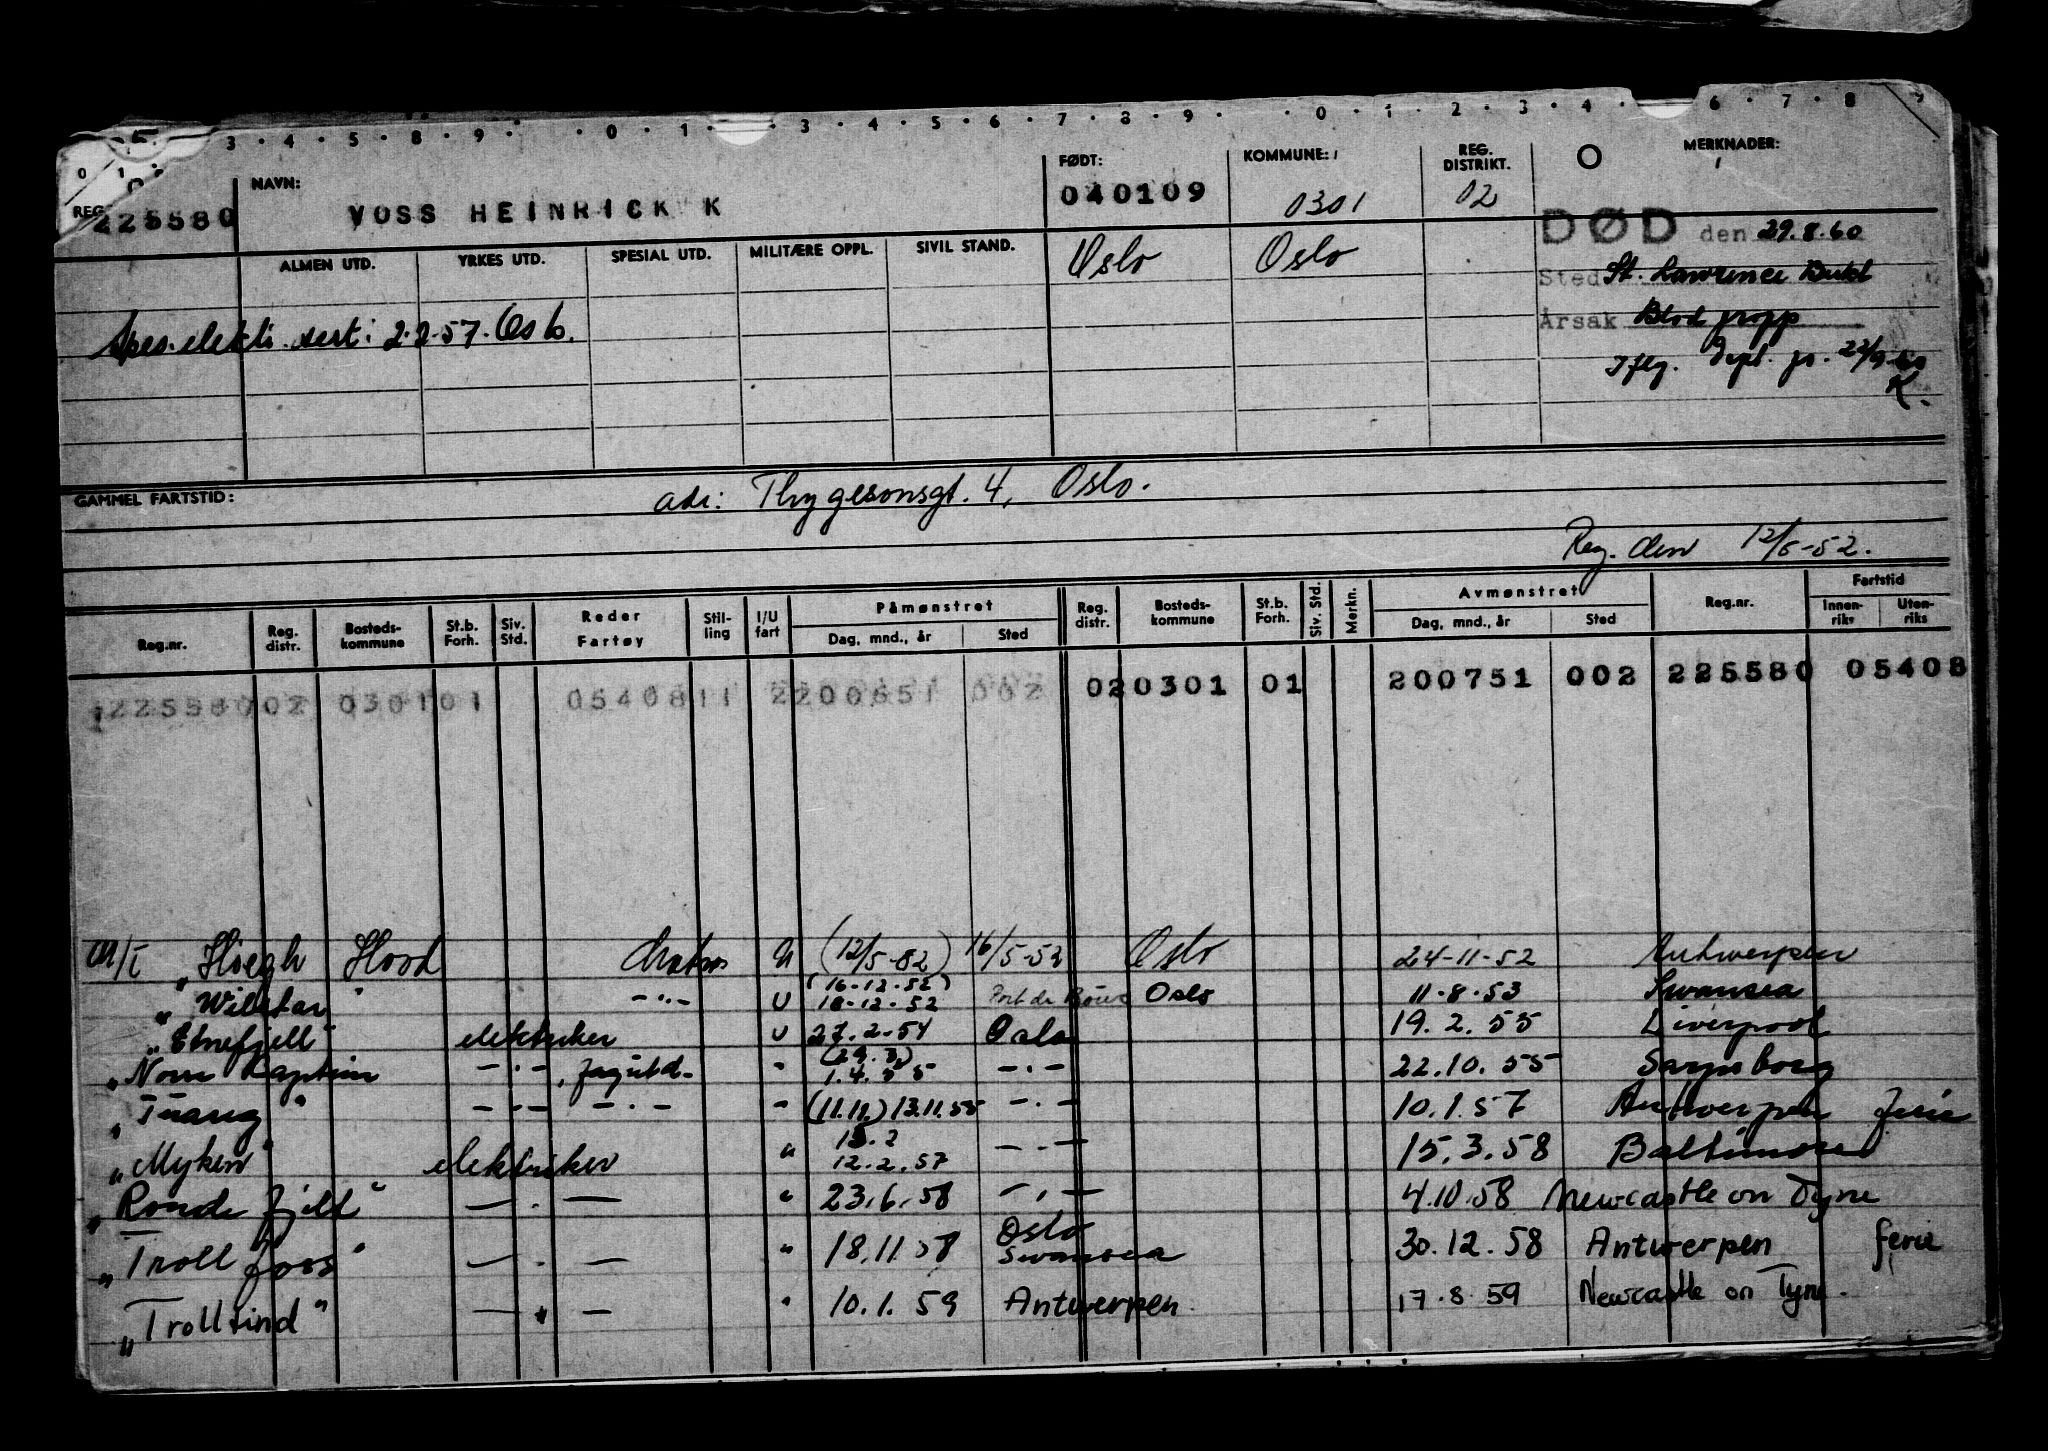 NAVN: FØDT: KOMMUNE: REG. DISTRIKT. MERKNADER:
REG. 225580 VOSS HEINRICK K 040109 0301 02
DØD den 29.8.60
ALMEN UTD. YRKES UTD. SPESIAL UTD. MILITÆRE OPPL. SIVIL STAND. Oslo Oslo
Sted St. Lawrence Bukt
Spes. elektr. sert: 2.2.57. Oslo.
Årsak Blodpropp
Iflg. 22/9-60
K.
GAMMEL FARTSTID: adr: Thygesonsgt. 4, Oslo.
Reg. den 12/5-52.
Reg.nr. Reg. distr. Bosteds-kommune St.b. Forh. Siv. Std. Reder Fartøy Stil-ling I/U fart Påmønstret Dag, mnd., år Sted Reg. distr. Bosteds-kommune St.b. Forh. Siv. Std. Merkn. Avmønstret Dag, mnd., år Sted Reg.nr. Fartstid Innen-riks Uten-riks
225580 02 0301 01 05408 11 2 200651 002 02 0301 01 200751 002 225580 05408
M/T "Höegh Hood Matros U (12/5-52) 16/5-52 Oslo 24-11-52 Antwerpen
" Wilstar" -"- U (16-12-52) 18-12-52 Port de Bouc Oslo 11.8.53 Swansea
"Etnefjell" elektriker U 27.2.54 Oslo 19.2.55 Liverpool
"Norse Captain -"- , fagutd- " (29.3) 1.4.55 -"- 22.10.55 Sarpsborg
" Tuareg" -"- -"- " (11.11.) 13.11.55 -"- 10.1.57 Antwerpen ferie
"Myken" elektriker " 12.2.57 -"- 15.3.58 Baltimore
"Ronde fjell" -"- " 23.6.58 -"- 4.10.58 Newcastle on Tyne
" Troll foss" -"- " 18.11.58 Oslo Swansea 30.12.58 Antwerpen ferie
"Trolltind" -"- " 10.1.59 Antwerpen. 17.8.59 Newcastle on Tyne.